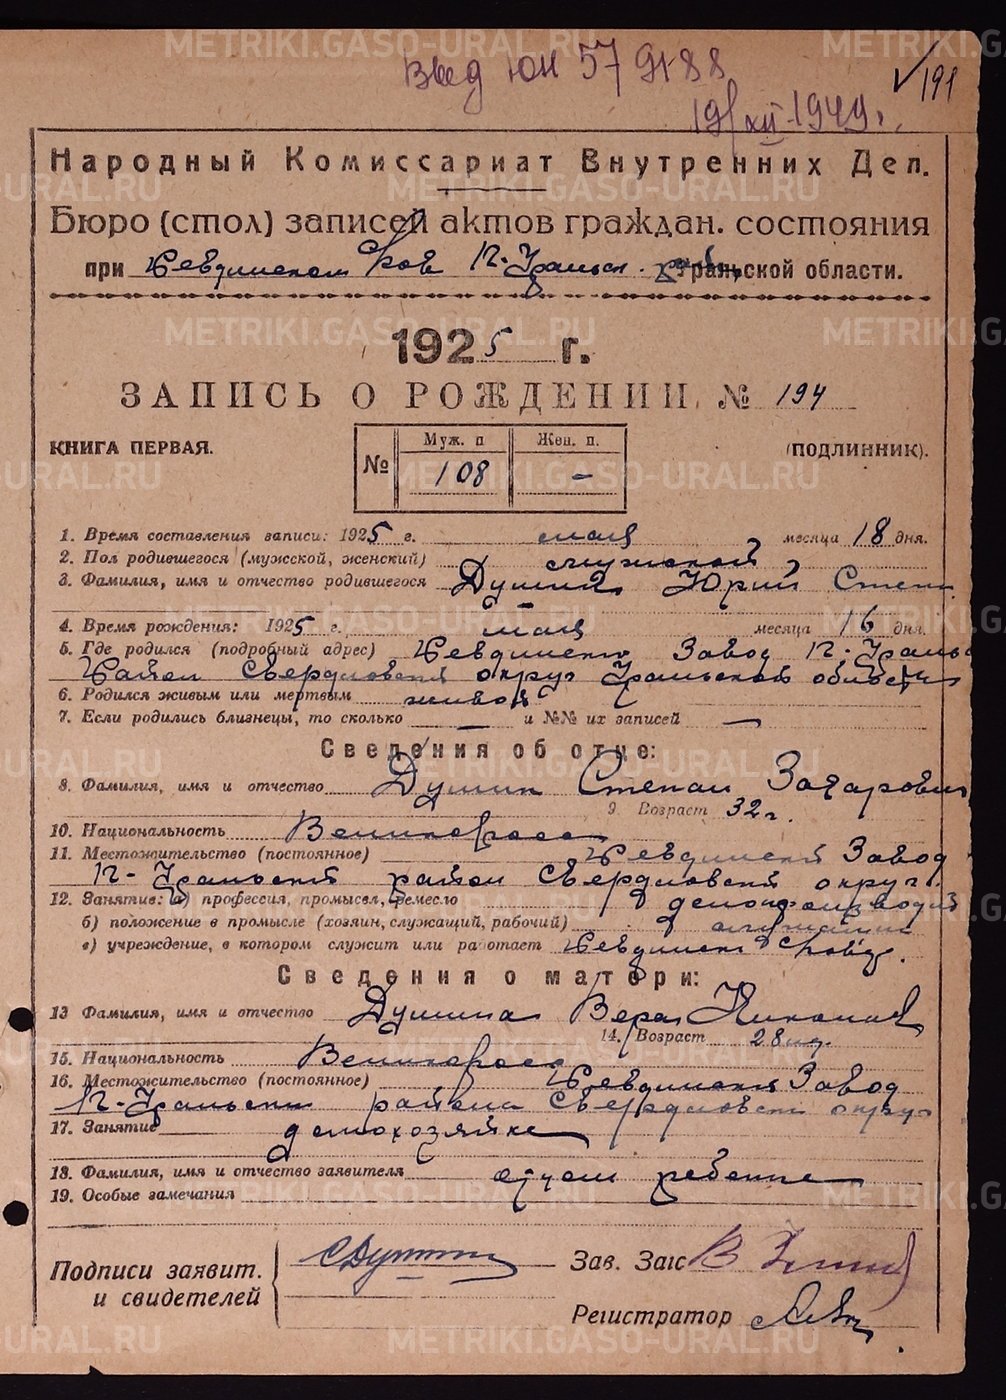 METRIKI.GASO-URAL.RU
Выд ЮН 57 9188
191
19/XII-1949 г.
Народный Комиссариат Внутренних Дел.
Бюро (стол) записей актов граждан. состояния
при Невдинском П-Уральск. Уральской области.
1925 г.
ЗАПИСЬ О РОЖДЕНИИ № 194
КНИГА ПЕРВАЯ. (ПОДЛИННИК).
№ Муж. п 108 Жен. п. -
1. Время составления записи: 1925 г. мая месяца 18 дня.
2. Пол родившегося (мужской, женский) мужской
3. Фамилия, имя и отчество родившегося Душин Юрий Степ
4. Время рождения: 1925 г. мая месяца 16 дня.
5. Где родился (подробный адрес) Завод П-Уральс
Район Свердловск округ Уральской области
6. Родился живым или мертвым живой
7. Если родились близнецы, то сколько — и №№ их записей —
Сведения об отце:
8. Фамилия, имя и отчество Душин Степан Захарович
9. Возраст 32 г.
10. Национальность Великоросс
11. Местожительство (постоянное) Завод
П-Уральск район Свердловск округ.
12. Занятие: а) профессия, промысел, ремесло делопроизвод
б) положение в промысле (хозяин, служащий, рабочий) служащий
в) учреждение, в котором служит или работает
Сведения о матери:
13 Фамилия, имя и отчество Душина Вера
14. Возраст 28
15. Национальность Великоросс
16. Местожительство (постоянное) Завод
П-Уральск района Свердловск округ
17. Занятие домохозяйка
18. Фамилия, имя и отчество заявителя отцом ребенка
19. Особые замечания
Подписи заявит. Зав. Загс
и свидетелей
Регистратор